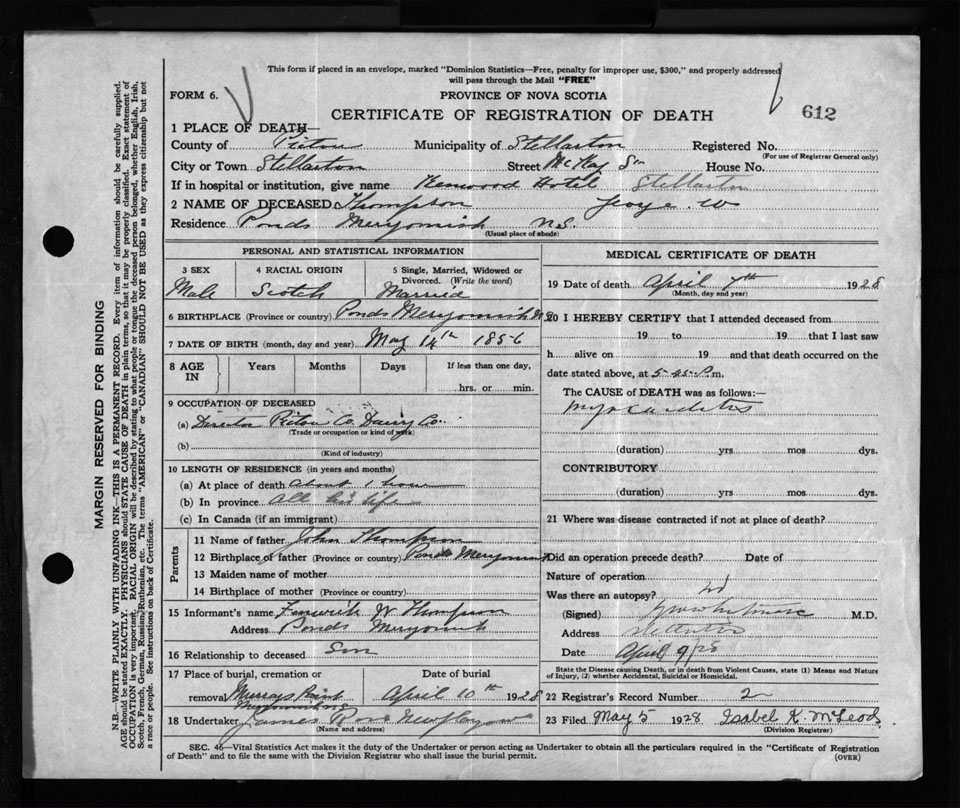 This form if placed in an envelope, marked "Dominion Statistics—Free, penalty for improper use, $300," and properly addressed
will pass through the Mail "FREE"
FORM 6. PROVINCE OF NOVA SCOTIA
CERTIFICATE OF REGISTRATION OF DEATH 612
1 PLACE OF DEATH—
County of Pictou Municipality of Stellarton Registered No.
(For use of Registrar General only)
City or Town Stellarton Street McKay St House No.
If in hospital or institution, give name Kenwood Hotel Stellarton
2 NAME OF DECEASED Thompson W
Residence Ponds Merigomish N.S.
(Usual place of abode)
PERSONAL AND STATISTICAL INFORMATION
3 SEX 4 RACIAL ORIGIN 5 Single, Married, Widowed or
Divorced. (Write the word)
Male Scotch Married
6 BIRTHPLACE (Province or country) Ponds Merigomish N.S.
7 DATE OF BIRTH (month, day and year) May 14th 1856
8 AGE
IN Years Months Days If less than one day,
hrs. or min.
9 OCCUPATION OF DECEASED
(a) Director Pictou Co. Dairy Co.
(Trade or occupation or kind of work)
(b)
(Kind of industry)
10 LENGTH OF RESIDENCE (in years and months)
(a) At place of death About 1 hour
(b) In province All his life
(c) In Canada (if an immigrant)
Parents
11 Name of father John Thompson
12 Birthplace of father (Province or country) Ponds Merigomish
13 Maiden name of mother
14 Birthplace of mother (Province or country)
15 Informant's name Fenwick W. Thompson
Address Ponds Merigomish
16 Relationship to deceased Son
17 Place of burial, cremation or Date of burial
removal Murrays Point April 10th 1928
Merigomish
18 Undertaker James Rose New Glasgow
(Name and address)
MEDICAL CERTIFICATE OF DEATH
19 Date of death April 7th 1928
(Month, day and year)
20 I HEREBY CERTIFY that I attended deceased from
19 to 19 that I last saw
h alive on 19 and that death occurred on the
date stated above, at 5-45 P.m.
The CAUSE of DEATH was as follows:
Myocarditis
(duration) yrs mos dys.
CONTRIBUTORY
(duration) yrs mos dys.
21 Where was disease contracted if not at place of death?
Did an operation precede death? Date of
Nature of operation
Was there an autopsy? No
(Signed) M.D.
Address Stellarton
Date April 9/28
State the Disease causing Death, or in death from Violent Causes, state (1) Means and Nature
of Injury, (2) whether Accidental, Suicidal or Homicidal.
22 Registrar's Record Number 2
23 Filed May 5 1928 Isabel K. McLeod
(Division Registrar)
SEC. 46—Vital Statistics Act makes it the duty of the Undertaker or person acting as Undertaker to obtain all the particulars required in the "Certificate of Registration
of Death" and to file the same with the Division Registrar who shall issue the burial permit.
(OVER)
MARGIN RESERVED FOR BINDING
N.B.—WRITE PLAINLY WITH UNFADING INK—THIS IS A PERMANENT RECORD. Every item of information should be carefully supplied.
AGE should be stated EXACTLY. PHYSICIANS should STATE CAUSE OF DEATH in plain terms, so that it may be properly classified. Exact statement of
OCCUPATION is very important. RACIAL ORIGIN will be described by stating to what people or tongue the deceased person belonged, whether English, Irish,
Scotch, French, German, Russian, Ruthenian, etc. The terms "AMERICAN" or "CANADIAN" SHOULD NOT BE USED as they express citizenship but not
a race or people. See instructions on back of Certificate.